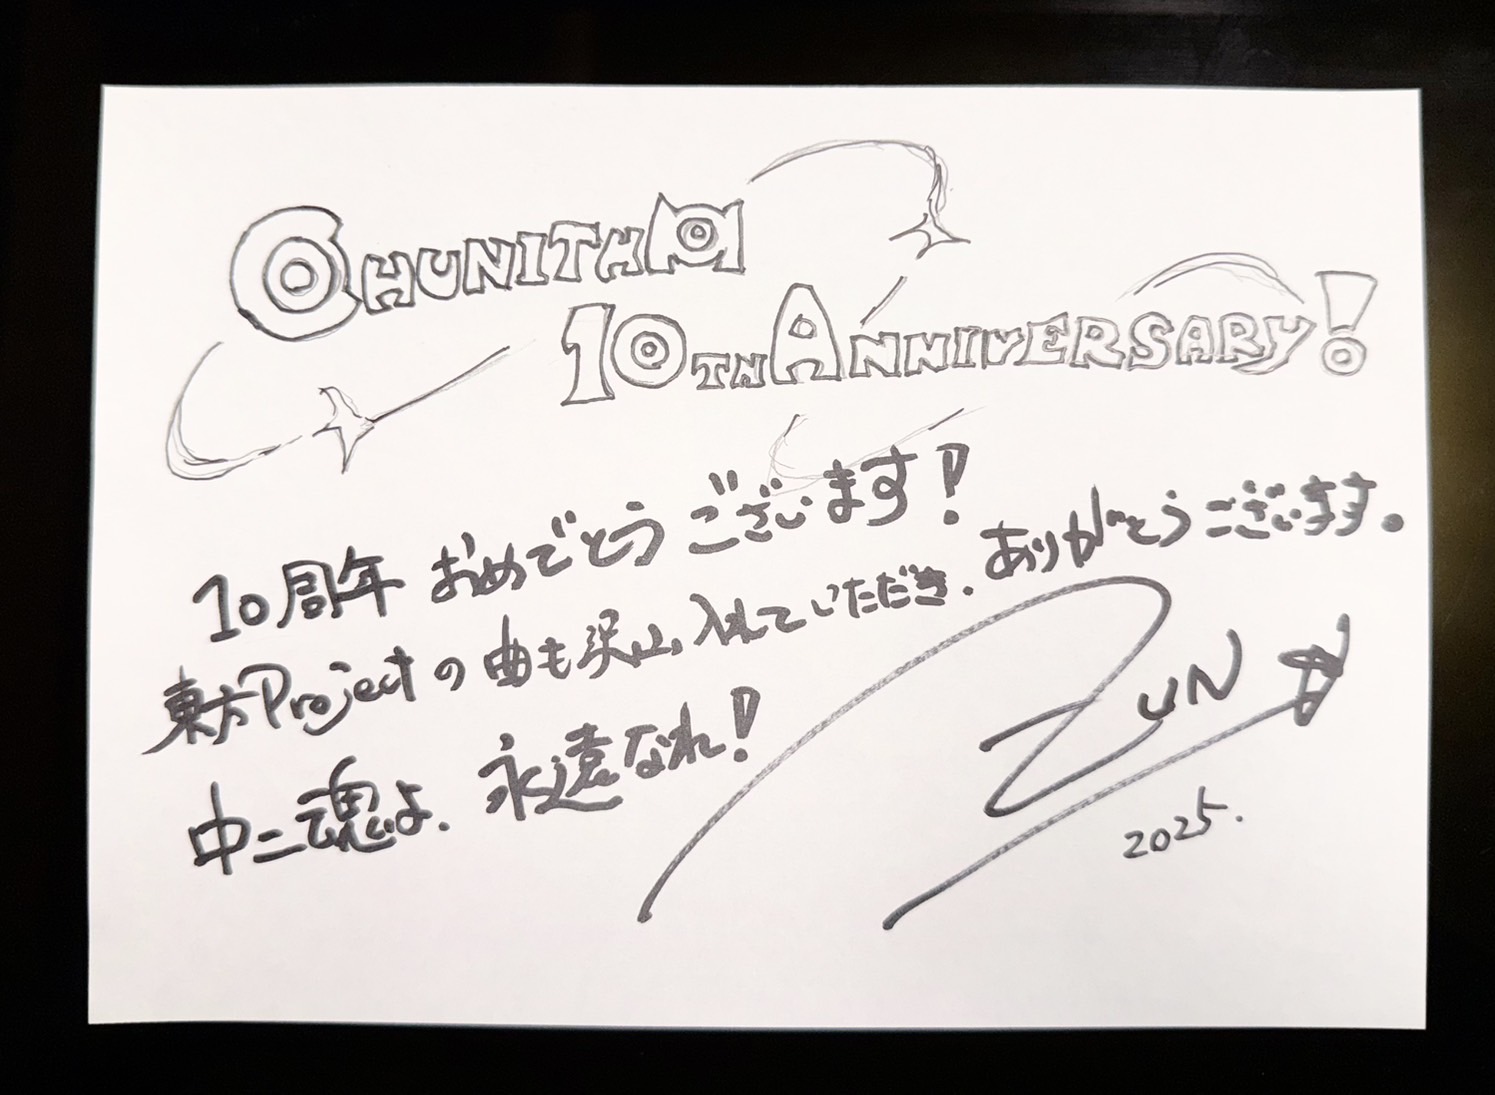 CHUNITHM
10TH ANNIVERSARY!
10周年 おめでとうございます!
東方Projectの曲も沢山入れていただき、ありがとうございます。
中二魂よ、永遠なれ!
ZUN
2025.